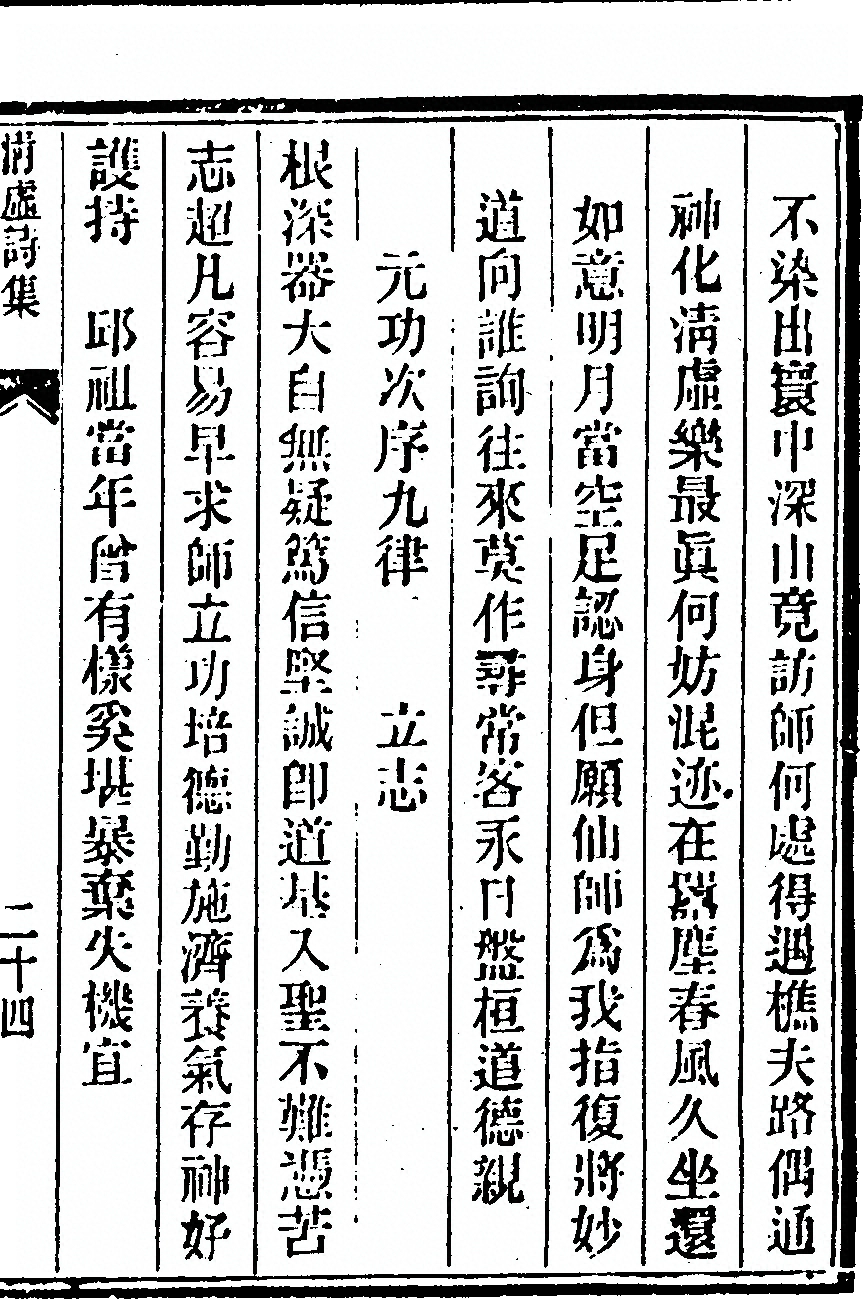 不染出寰中深山竟訪師何處得遇樵夫路偶通
神化淸虛樂最眞何妨混迹在嚣塵春風久坐還
如意明月當空足認身但願仙師爲我指復將妙
道向誰詢往來莫作尋常客永日盤桓道德親
元功次序九律　立志
根深器大自無疑篤信堅誠卽道基入聖不難憑苦
志超凡容易早求師立功培德勤施濟養氣存神好
護持　邱祖當年曾有樣奚堪暴棄失機宜
淸虛詩集　二十四